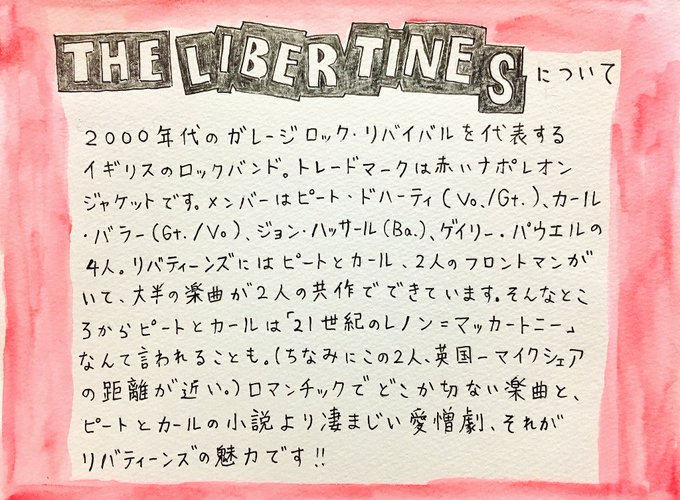 THE LIBERTINES について
2000年代のガレージロック・リバイバルを代表する
イギリスのロックバンド。トレードマークは赤いナポレオン
ジャケットです。メンバーはピート・ドハーティ(Vo./Gt.)、カール
・バラー(Gt./Vo)、ジョン・ハッサール(Ba.)、ゲイリー・パウエルの
4人。リバティーンズにはピートとカール、2人のフロントマンが
いて、大半の楽曲が2人の共作でできています。そんなとこ
ろからピートとカールは「21世紀のレノン=マッカートニー」
なんて言われることも。(ちなみにこの2人、英国一マイクシェア
の距離が近い。)ロマンチックでどこか切ない楽曲と、
ピートとカールの小説より凄まじい愛憎劇、それが
リバティーンズの魅力です!!